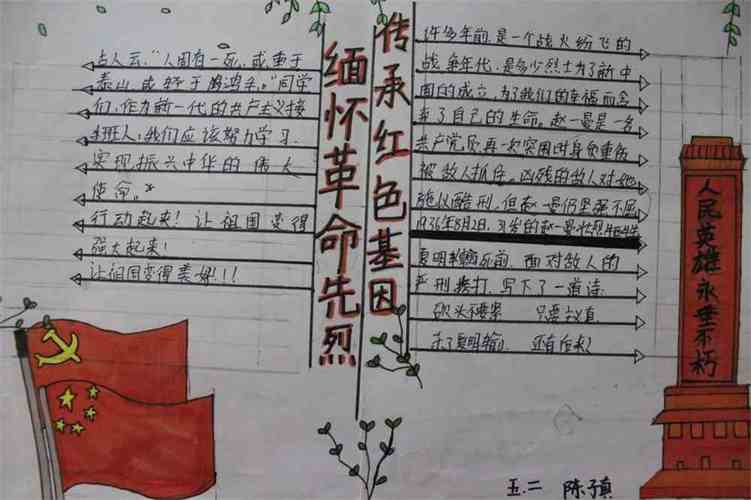 缅怀革命先烈
传承红色基因
古人云,"人固有一死,或重于
泰山,或轻于鸿毛。"同学
们,作为新一代的共产主义接
班人,我们应该努力学习.
实现振兴中华的伟大
使命。
行动起来! 让祖国变得
强大起来!
让祖国变得美好!!!
许多年前,是一个战火纷飞的
战争年代,是多少烈士为了新中
国的成立,为了我们的幸福而舍
弃了自己的生命。赵一曼是一名
共产党员,再一次突围时身负重伤
被敌人抓住。凶残的敌人对她
施以酷刑,但赵一曼仍坚强不屈
1936年8月2日,31岁的赵一曼壮烈牺牲
夏明翰死前,面对敌人的
严刑拷打,写下了一首诗
砍头不要紧 只要主义真
杀了夏明翰 还有后来
人民英雄永垂不朽
五.二 陈子真